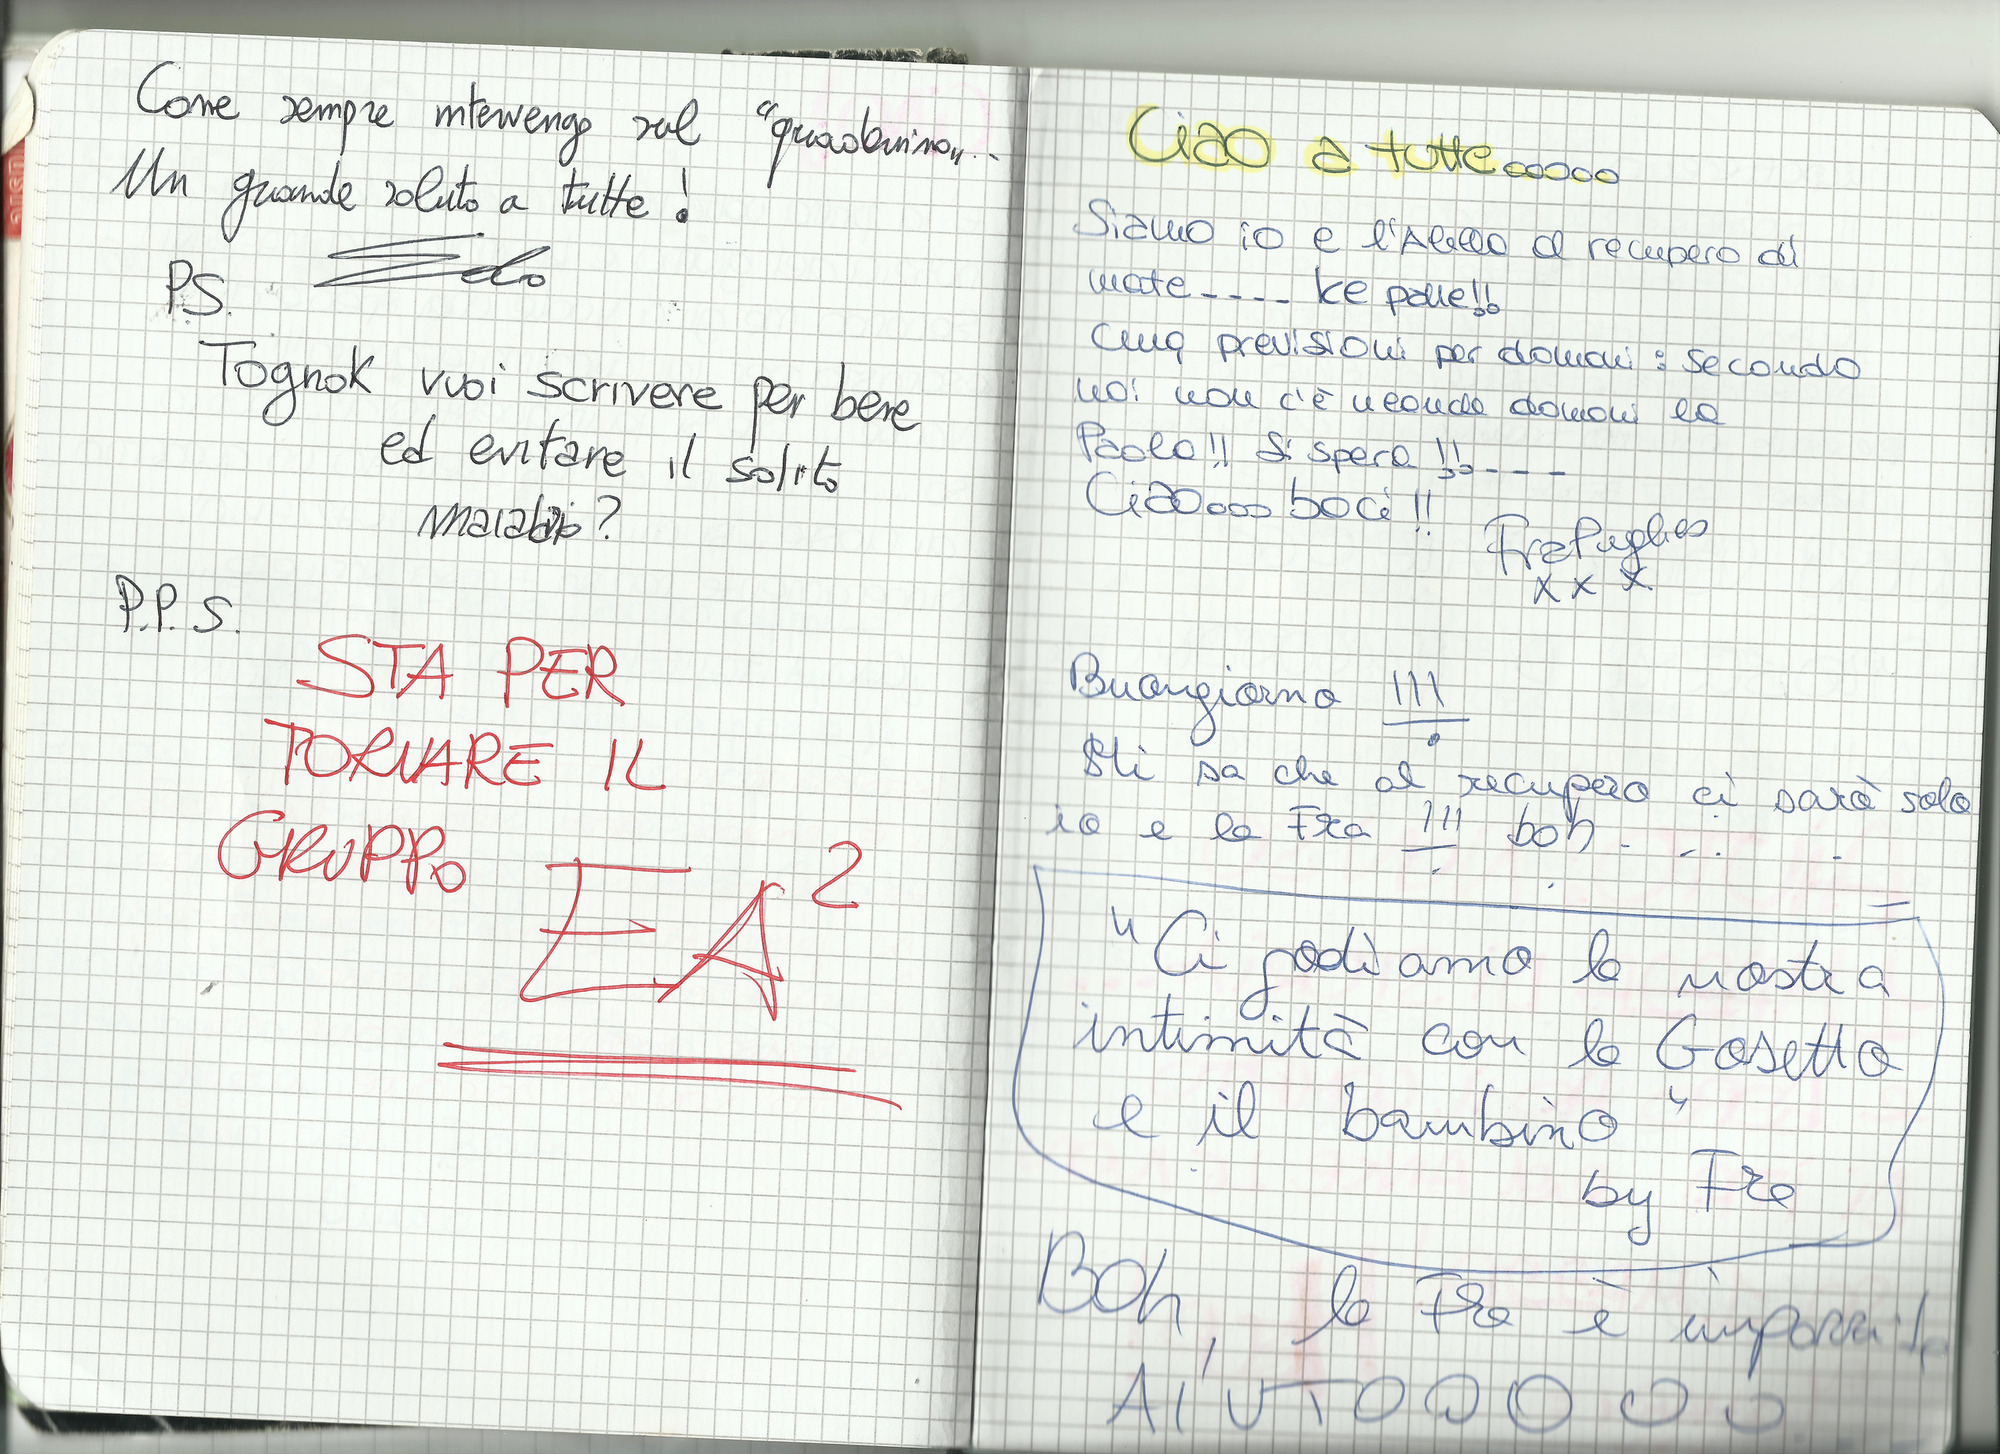 Come sempre intervengo sul "quadernino...
Un grande saluto a tutte!
Edo
P.S.
Tognok vuoi scrivere per bene
ed evitare il solito
P.P.S.
STA PER
TORNARE IL
GRUPPO EA²
Ciao a tutte ooooo
Siamo io e l'Alello al recupero di
mate---- ke palle!!
Cmq previsioni per domani: secondo
noi non c'è neanche domani la
Paolo!! Si spera!!----
Ciaoooo boci!!
FraPuglies
x x x
Buongiorno !!!
Mi sa che al recupero ci sarà solo
io e la Fra !!! boh. ...
"Ci godiamo la nostra
intimità con la Gosetto
e il bambino"
by Fra
Boh, la Fra è impazzita
AIUTOOOOO